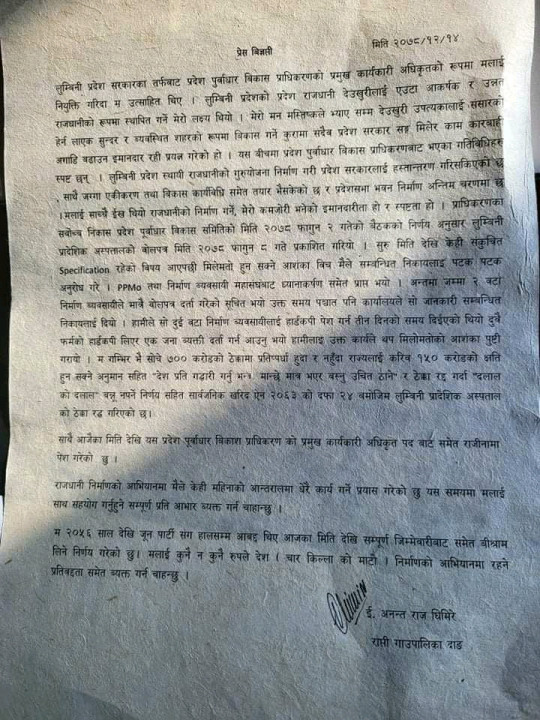 मिति २०७८/१२/१४
प्रेस विज्ञप्ती
लुम्बिनी प्रदेश सरकारका तर्फवाट प्रदेश पुर्वाधार विकास प्राधिकरणको प्रमुख कार्यकारी अधिकृतको रूपमा मलाई
नियुक्ति गरिदा म उत्साहित थिए । लुम्बिनी प्रदेशको प्रदेश राजधानी देउखुरीलाई एउटा आकर्षक र उन्नत
राजधानीको रूपमा स्थापित गर्ने मेरो लक्ष्य थियो । मेरो मन मस्तिष्कले भ्याए सम्म देउखुरी उपत्यकालाई संसारको
हेर्न लाएक सुन्दर र ब्यवस्थित शहरको रूपमा विकास गर्ने कुरामा सदैव प्रदेश सरकार सङ्ग मिलेर काम कारवाही
अगाडि बढाउन इमानदार रही प्रयत्न गरेको हो । यस बीचमा प्रदेश पुर्वाधार विकास प्राधिकरणबाट भएका गतिबिधिहरु
स्पष्ट छन् । लुम्बिनी प्रदेश स्थायी राजधानीको गुरुयोजना निर्माण गरी प्रदेश सरकारलाई हस्तान्तरण गरिसकिएको छ
, साथै जग्गा एकीकरण तथा बिकास कार्यबिधि समेत तयार भैसकेको छ र प्रदेशसभा भवन निर्माण अन्तिम चरणमा छ
।मलाई साच्चै ईख थियो राजधानीको निर्माण गर्ने, मेरो कमजोरी भनेको इमानदारीता हो र स्पष्टता हो । प्राधिकरणका
सर्वोच्च निकास प्रदेश पुर्वाधार विकास समितिको मिति २०७८ फागुन २ गतेको बैठकको निर्णय अनुसार लुम्बिनी
प्रादेशिक अस्पतालको बोलपत्र मिति २०७८ फागुन ८ गते प्रकाशित गरियो । सुरु मिति देखि केही संकुचित
Specification रहेको विषय आएपछी मिलेमतो हुन सक्ने आशंका बिच मैले सम्बन्धित निकायलाइ पटक पटक
अनुरोध गरे । PPMo तथा निर्माण ब्यवसायी महासंघबाट ध्यानाकर्षण समेत प्राप्त भयो । अन्तमा जम्मा २ वटा
निर्माण ब्यवसायीले मात्रै बोलपत्र दर्ता गरेको सूचित भयो उक्त समय पश्चात पनि कार्यालयले सो जानकारी सम्बन्धित
निकायलाई दियो । हामीले सो दुई वटा निर्माण ब्यवसायीलाई हार्डकपी पेश गर्न तीन दिनको समय दिईएको थियो दुवै
फर्मको हार्डकपी लिएर एक जना ब्यक्ती दर्ता गर्न आउनु भयो हामीलाइ उक्त कार्यले थप मिलोमतोको आशंका पुष्टी
गरायो । म गम्भिर भै सोचे ७०० करोडको ठेक्कामा प्रतिष्पर्धा हुदा र नहुँदा राज्यलाई करिव १५० करोडको क्षति
हुन सक्ने अनुमान सहित "देश प्रति गद्धारी गर्नु भन्दा मान्छे मात्र भएर बस्नु उचित ठाने" र ठेक्का रद्द गर्दा "दलाल
को दलाल" बन्नू नपर्ने निर्णय सहित सार्वजनिक खरिद ऐन २०६३ को दफा २४ बमोजिम लुम्बिनी प्रादेशिक अस्पताल
को ठेक्का रद्ध गरिएको छ।
साथै आजैका मिति देखि यस प्रदेश पूर्वाधार बिकाश प्राधिकरण को प्रमुख कार्यकारी अधिकृत पद बाट समेत राजीनामा
पेश गरेको छु ।
राजधानी निर्माणको आभियानमा मैले केही महिनाको आन्तरालमा धेरै कार्य गर्ने प्रयास गरेको छु यस समयमा मलाई
साथ सहयोग गर्नुहुने सम्पूर्ण प्रति आभार ब्यक्त गर्न चाहान्छु ।
म २०५६ साल देखि जुन पार्टी संग हालसम्म आबद्द थिए आजका मिति देखि सम्पूर्ण जिम्मेवारीबाट समेत बीश्राम
लिने निर्णय गरेको छु। मलाई कुनै न कुनै रुपले देश ( चार किल्ला को माटो) । निर्माणको आभियानमा रहने
प्रतिवद्दता समेत ब्यक्त गर्न चाहन्छु ।
ई. अनन्त राज घिमिरे
राप्ती गाउपालिका दाङ